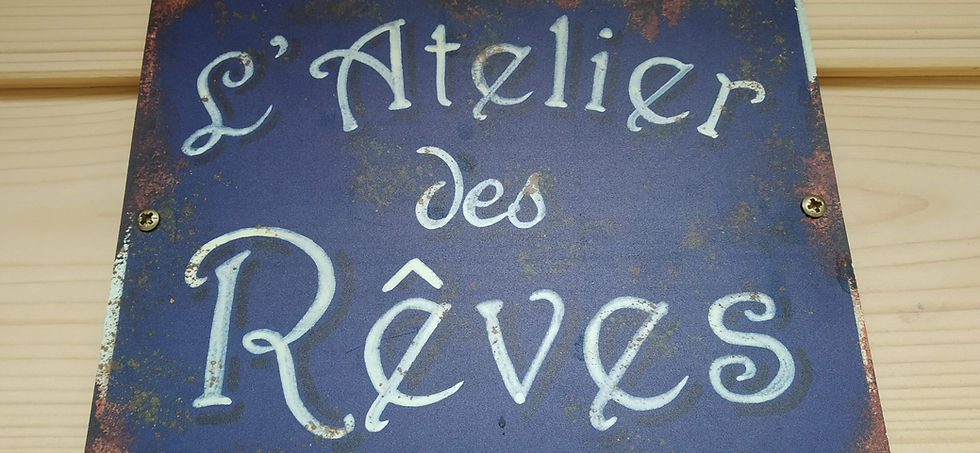 L'Atelier
des
Rêves